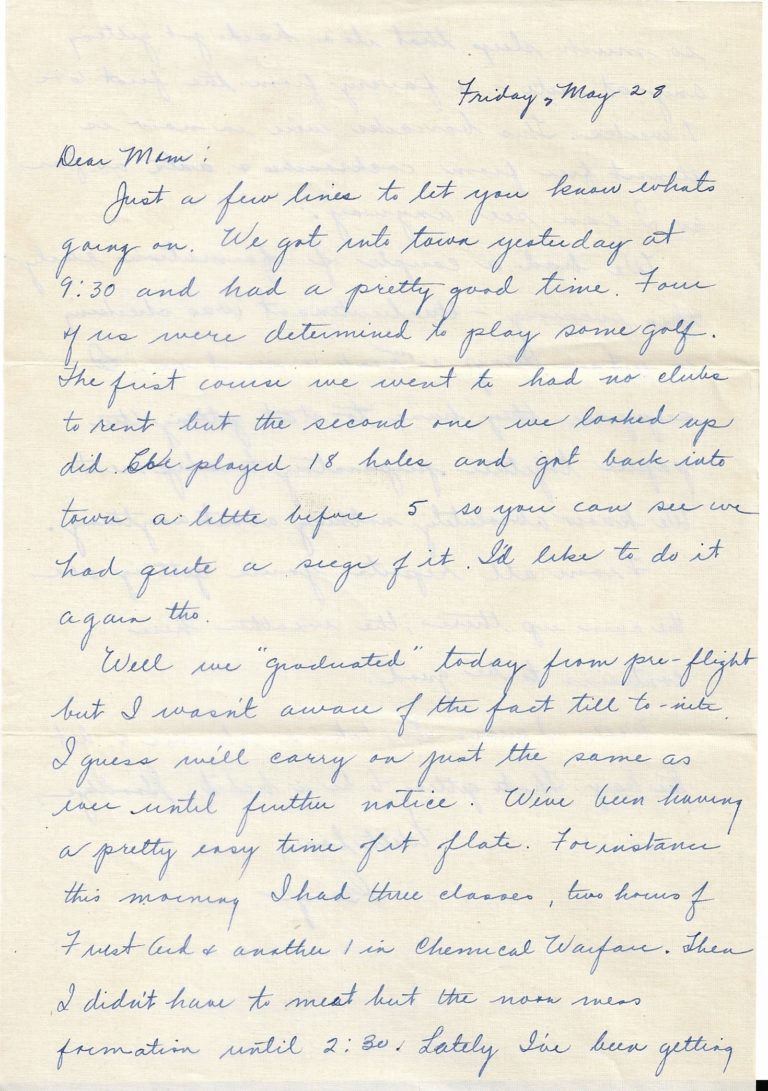 Friday, May 28
Dear Mom:
Just a few lines to let you know whats
going on. We got into town yesterday at
9:30 and had a pretty good time. Four
of us were determined to play some golf.
The first course we went to had no clubs
to rent but the second one we looked up
did. We played 18 holes and got back into
town a little before 5 so you can see we
had quite a siege of it. I'd like to do it
again tho.
Well we "graduated" today from pre-flight
but I wasn't aware of the fact till to-nite.
I guess we'll carry on just the same as
ever until further notice. We've been having
a pretty easy time of it flate. For instance
this morning I had three classes, two hours of
First Aid & another 1 in Chemical Warfare. Then
I didn't have to meat but the noon mess
formation until 2:30. Lately I've been getting